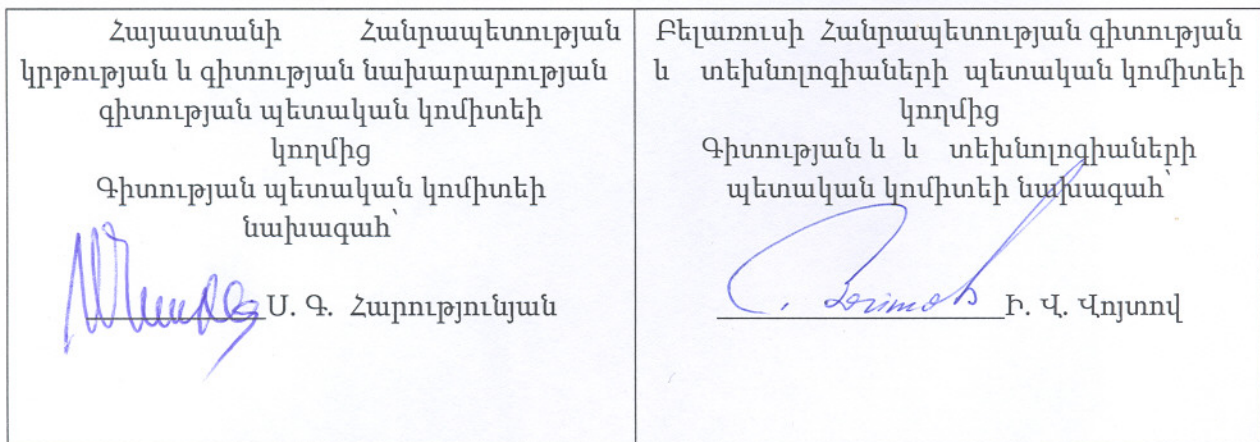 Հայաստանի Հանրապետության
կրթության և գիտության նախարարության
գիտության պետական կոմիտեի
կողմից
Գիտության պետական կոմիտեի
նախագահ՝
Ս. Գ. Հարությունյան
Բելառուսի Հանրապետության գիտության
և տեխնոլոգիաների պետական կոմիտեի
կողմից
Գիտության և և տեխնոլոգիաների
պետական կոմիտեի նախագահ՝
Ի. Վ. Վոյտով